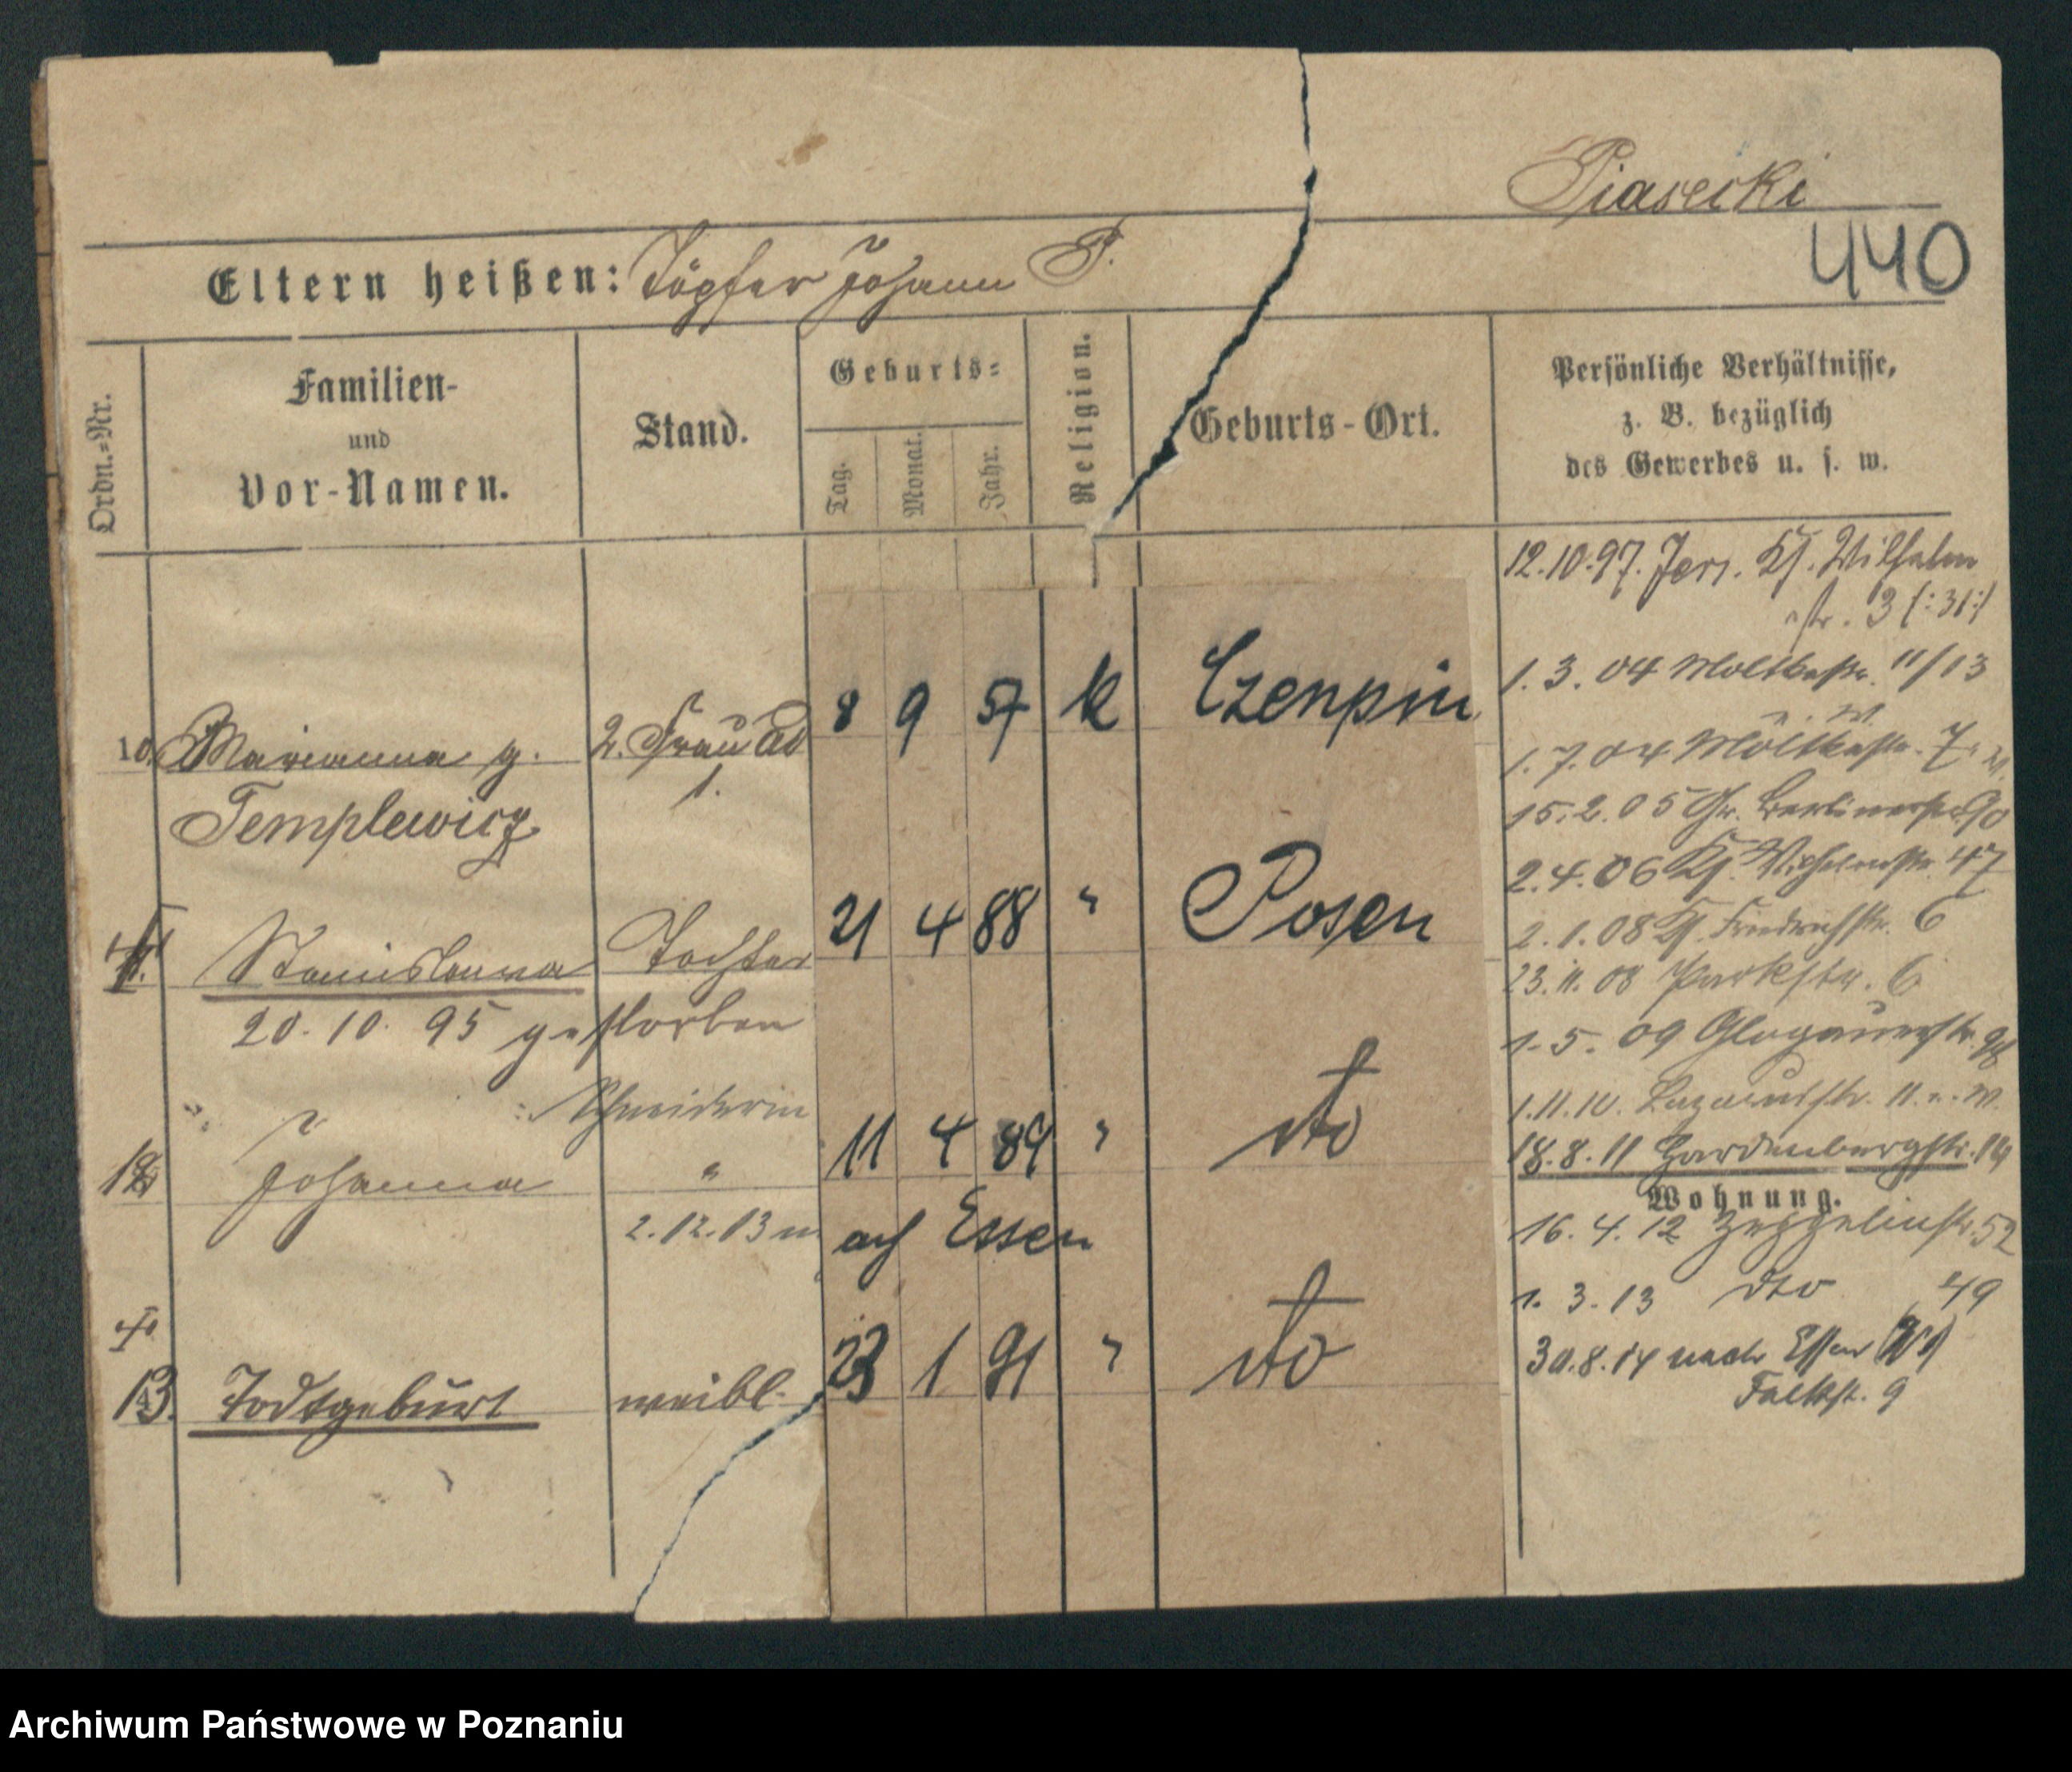 Piasecki
440
Eltern heißen: Töpfer Johann P.
Ordn.=Nr.
Familien-
und
Vor-Namen.
Stand.
Geburts=
Tag.
Monat.
Jahr.
Religion.
Geburts-Ort.
Persönliche Verhältnisse,
z. B. bezüglich
des Gewerbes u. s. w.
12.10.97. Jers. Kf. Wilhelm
str. 3 (:31:)
1.3.04 Moltkestr. 11/13
10. Marianna g. 2. Frau ad 8 9 57 k Czenpin
1.
Templewicz
1.7.04 Moltkestr. 7
15.2.05 Gr. Berlinerstr. 90
2.4.06 Kf. Wilhelmstr. 47
11. Stanislawa Tochter 21 4 88 " Posen
2.1.08 Kf. Friedrichstr. 6
23.11.08 Parkstr. 6
20.10.95 gestorben
1.5.09 Glogauerstr. 98
Schneiderin
1.11.10. Lazarusstr. 11
12 Johanna " 11 4 89 " dto
18.8.11 Hardenbergstr. 14
Wohnung.
2.12.13 nach Essen
16.4.12 Zeppelinstr. 52
1.3.13 dto 49
13. Todtgeburt weibl. 23 1 91 " dto
30.8.14 nach Essen
Falkstr. 9
Archiwum Państwowe w Poznaniu